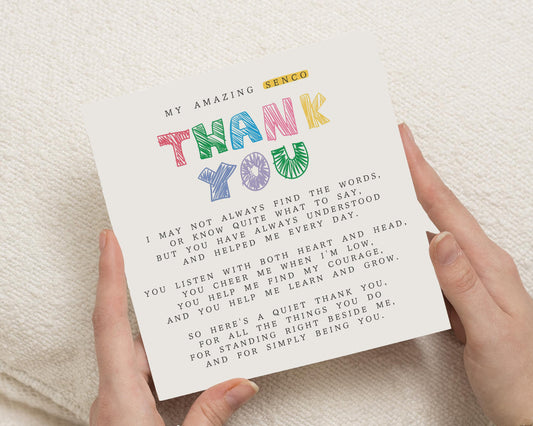 MY AMAZING SENCO
THANK
YOU
I MAY NOT ALWAYS FIND THE WORDS,
OR KNOW QUITE WHAT TO SAY,
BUT YOU HAVE ALWAYS UNDERSTOOD
AND HELPED ME EVERY DAY.
YOU LISTEN WITH BOTH HEART AND HEAD,
YOU CHEER ME WHEN I'M LOW,
YOU HELP ME FIND MY COURAGE,
AND YOU HELP ME LEARN AND GROW.
SO HERE'S A QUIET THANK YOU,
FOR ALL THE THINGS YOU DO,
FOR STANDING RIGHT BESIDE ME,
AND FOR SIMPLY BEING YOU.